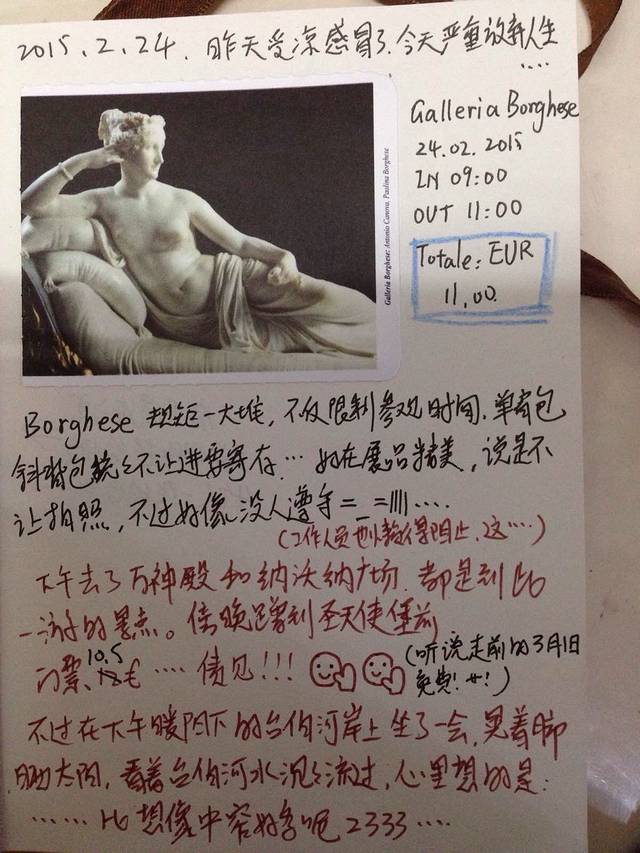 2015.2.24. 昨天受凉感冒了.今天严重放弃人生
....
Galleria Borghese
24.02.2015
IN 09:00
OUT 11:00
Totale: EUR
11,00.
Galleria Borghese: Antonio Canova, Paolina Borghese
Borghese 规矩一大堆, 不仅限制参观时间, 单肩包
斜背包统统不让进要寄存... 好在展品精美, 说是不
让拍照, 不过好像没人遵守=_=|||| ....
(工作人员也懒得阻止, 这....)
下午去了万神殿和纳沃纳广场, 都是到此
一游的景点。傍晚蹭到圣天使堡前
门票、10.5 € .... 债见!!!
(听说走前的3月1日
免费! 艹!)
不过在下午暖阳下的台伯河岸上坐了一会, 晃着脚
晒太阳, 看着台伯河水沉沉流过, 心里想的是:
......比想像中窄好多呢 2333 ....